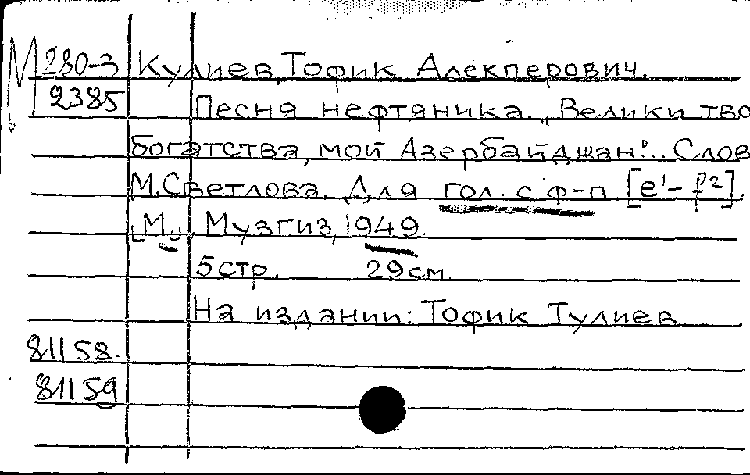 М 280-3 Кулиев, Тофик Алекперович.
2385 Песня нефтяника. „Велики тво
богатства, мой Азербайджан!".. Слов
М. Светлова. Для гол. с ф-п [e¹-f²].
[М.], Музгиз, 1949.
5 стр. 29 см.
На издании: Тофик Тулиев
81158.
81159